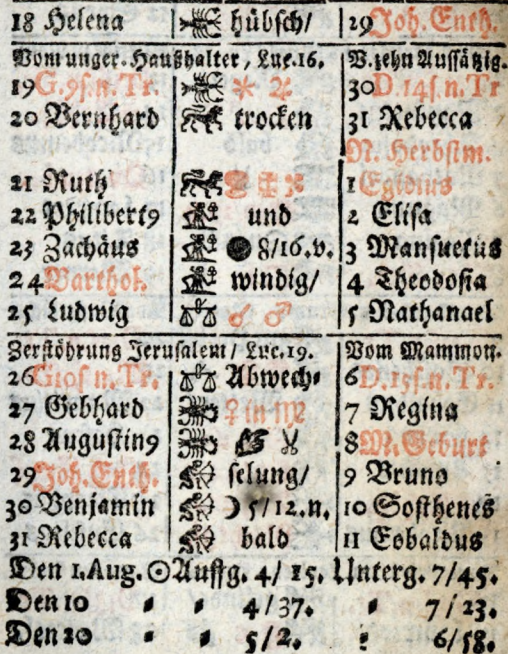 18 Helena hübsch/ 29 Joh. Enth.
Vom unger. Haußhalter, Luc. 16. V. zehn Aussätzig.
19 G. 9 s. n. Tr. ✶ ♃ 30 D. 14 s. n. Tr
20 Bernhard trocken 31 Rebecca
N. Herbstm.
21 Ruth 1 Egidius
22 Philibert9 und 2 Elisa
23 Zachäus ● 8/16. v. 3 Mansuetus
24 Barthol. windig/ 4 Theodosia
25 Ludwig ♎ ☌ ♂ 5 Nathanael
Zerstöhrung Jerusalem/ Luc. 19. Vom Mammon.
26 G 10 s n. Tr. ♎ Abwech- 6 D. 15 s. n. Tr.
27 Gebhard ♀ in ♍ 7 Regina
28 Augustin9 8 M. Geburt
29 Joh. Enth. selung/ 9 Bruno
30 Benjamin ☽ 5/12. n. 10 Sosthenes
31 Rebecca bald 11 Eobaldus
Den 1. Aug. ☉ Auffg. 4/ 15. Unterg. 7/45.
Den 10 = = 4/37. = 7/23.
Den 20 = = 5/2. = 6/58.